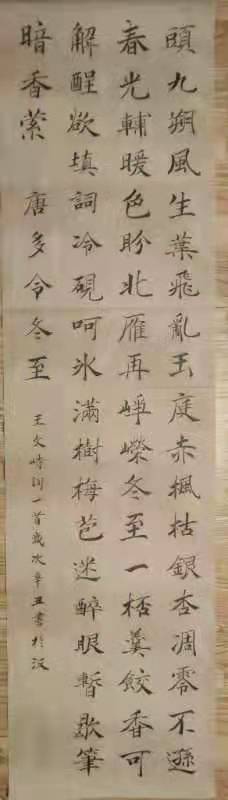 頭九朔風生葉飛亂玉庭赤楓枯銀杏凋零不遜
春光輔暖色盼北雁再崢嶸冬至一桮羹餃香可
解酲欲填詞冷硯呵氷滿樹梅苞迷醉眼暫歇筆
暗香縈 唐多令冬至 王文峙詞一首歲次辛丑書於汉